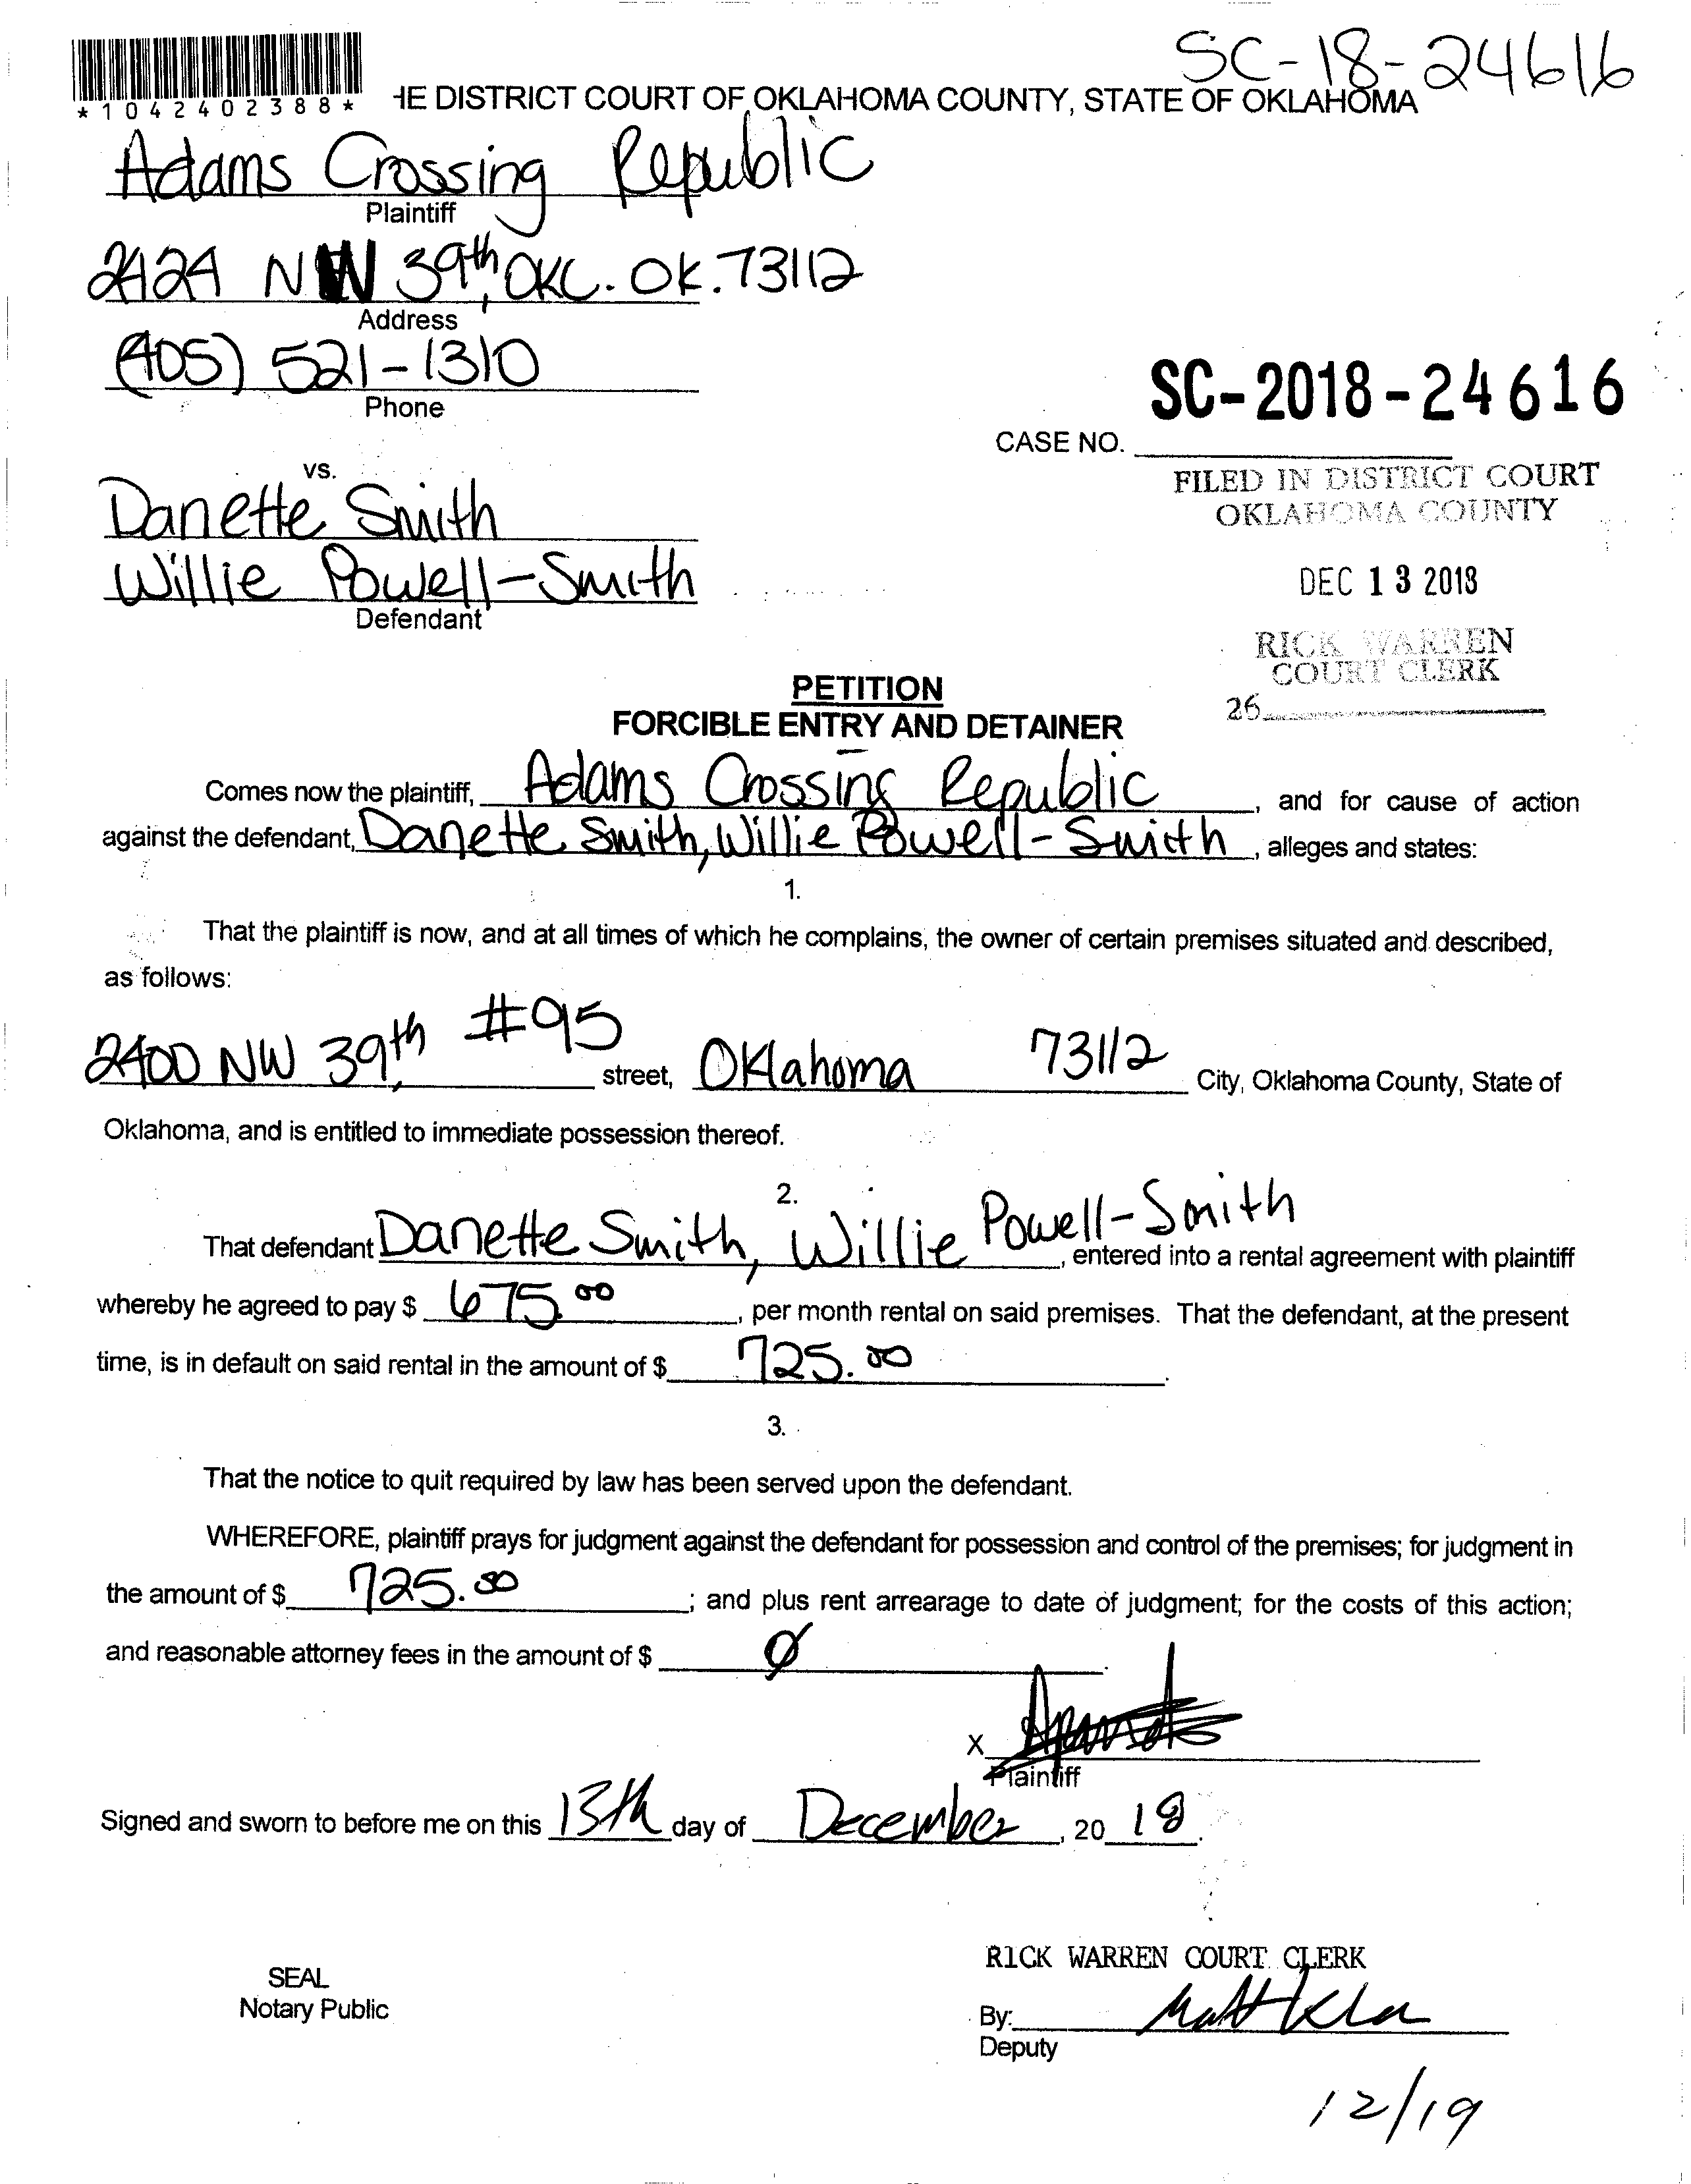 SC-18-24616
*1042402388*
HE DISTRICT COURT OF OKLAHOMA COUNTY, STATE OF OKLAHOMA
Adams Crossing Republic
Plaintiff
2424 NW 39th, OKC. OK. 73112
Address
(405) 521-1310
Phone
SC-2018-24616
CASE NO.
vs.
FILED IN DISTRICT COURT
OKLAHOMA COUNTY
Danette Smith
Willie Powell-Smith
Defendant
DEC 13 2018
RICK WARREN
COURT CLERK
26
PETITION
FORCIBLE ENTRY AND DETAINER
Comes now the plaintiff, Adams Crossing Republic, and for cause of action
against the defendant, Danette Smith, Willie Powell-Smith, alleges and states:
1.
That the plaintiff is now, and at all times of which he complains, the owner of certain premises situated and described,
as follows:
2400 NW 39th, #95 street, Oklahoma 73112 City, Oklahoma County, State of
Oklahoma, and is entitled to immediate possession thereof.
2.
That defendant Danette Smith, Willie Powell-Smith, entered into a rental agreement with plaintiff
whereby he agreed to pay $ 675.00, per month rental on said premises. That the defendant, at the present
time, is in default on said rental in the amount of $ 725.00.
3.
That the notice to quit required by law has been served upon the defendant.
WHEREFORE, plaintiff prays for judgment against the defendant for possession and control of the premises; for judgment in
the amount of $ 725.00; and plus rent arrearage to date of judgment; for the costs of this action;
and reasonable attorney fees in the amount of $ Ø.
X
Plaintiff
Signed and sworn to before me on this 13th day of December, 2018.
RICK WARREN COURT CLERK
SEAL
Notary Public
By:
Deputy
12/19